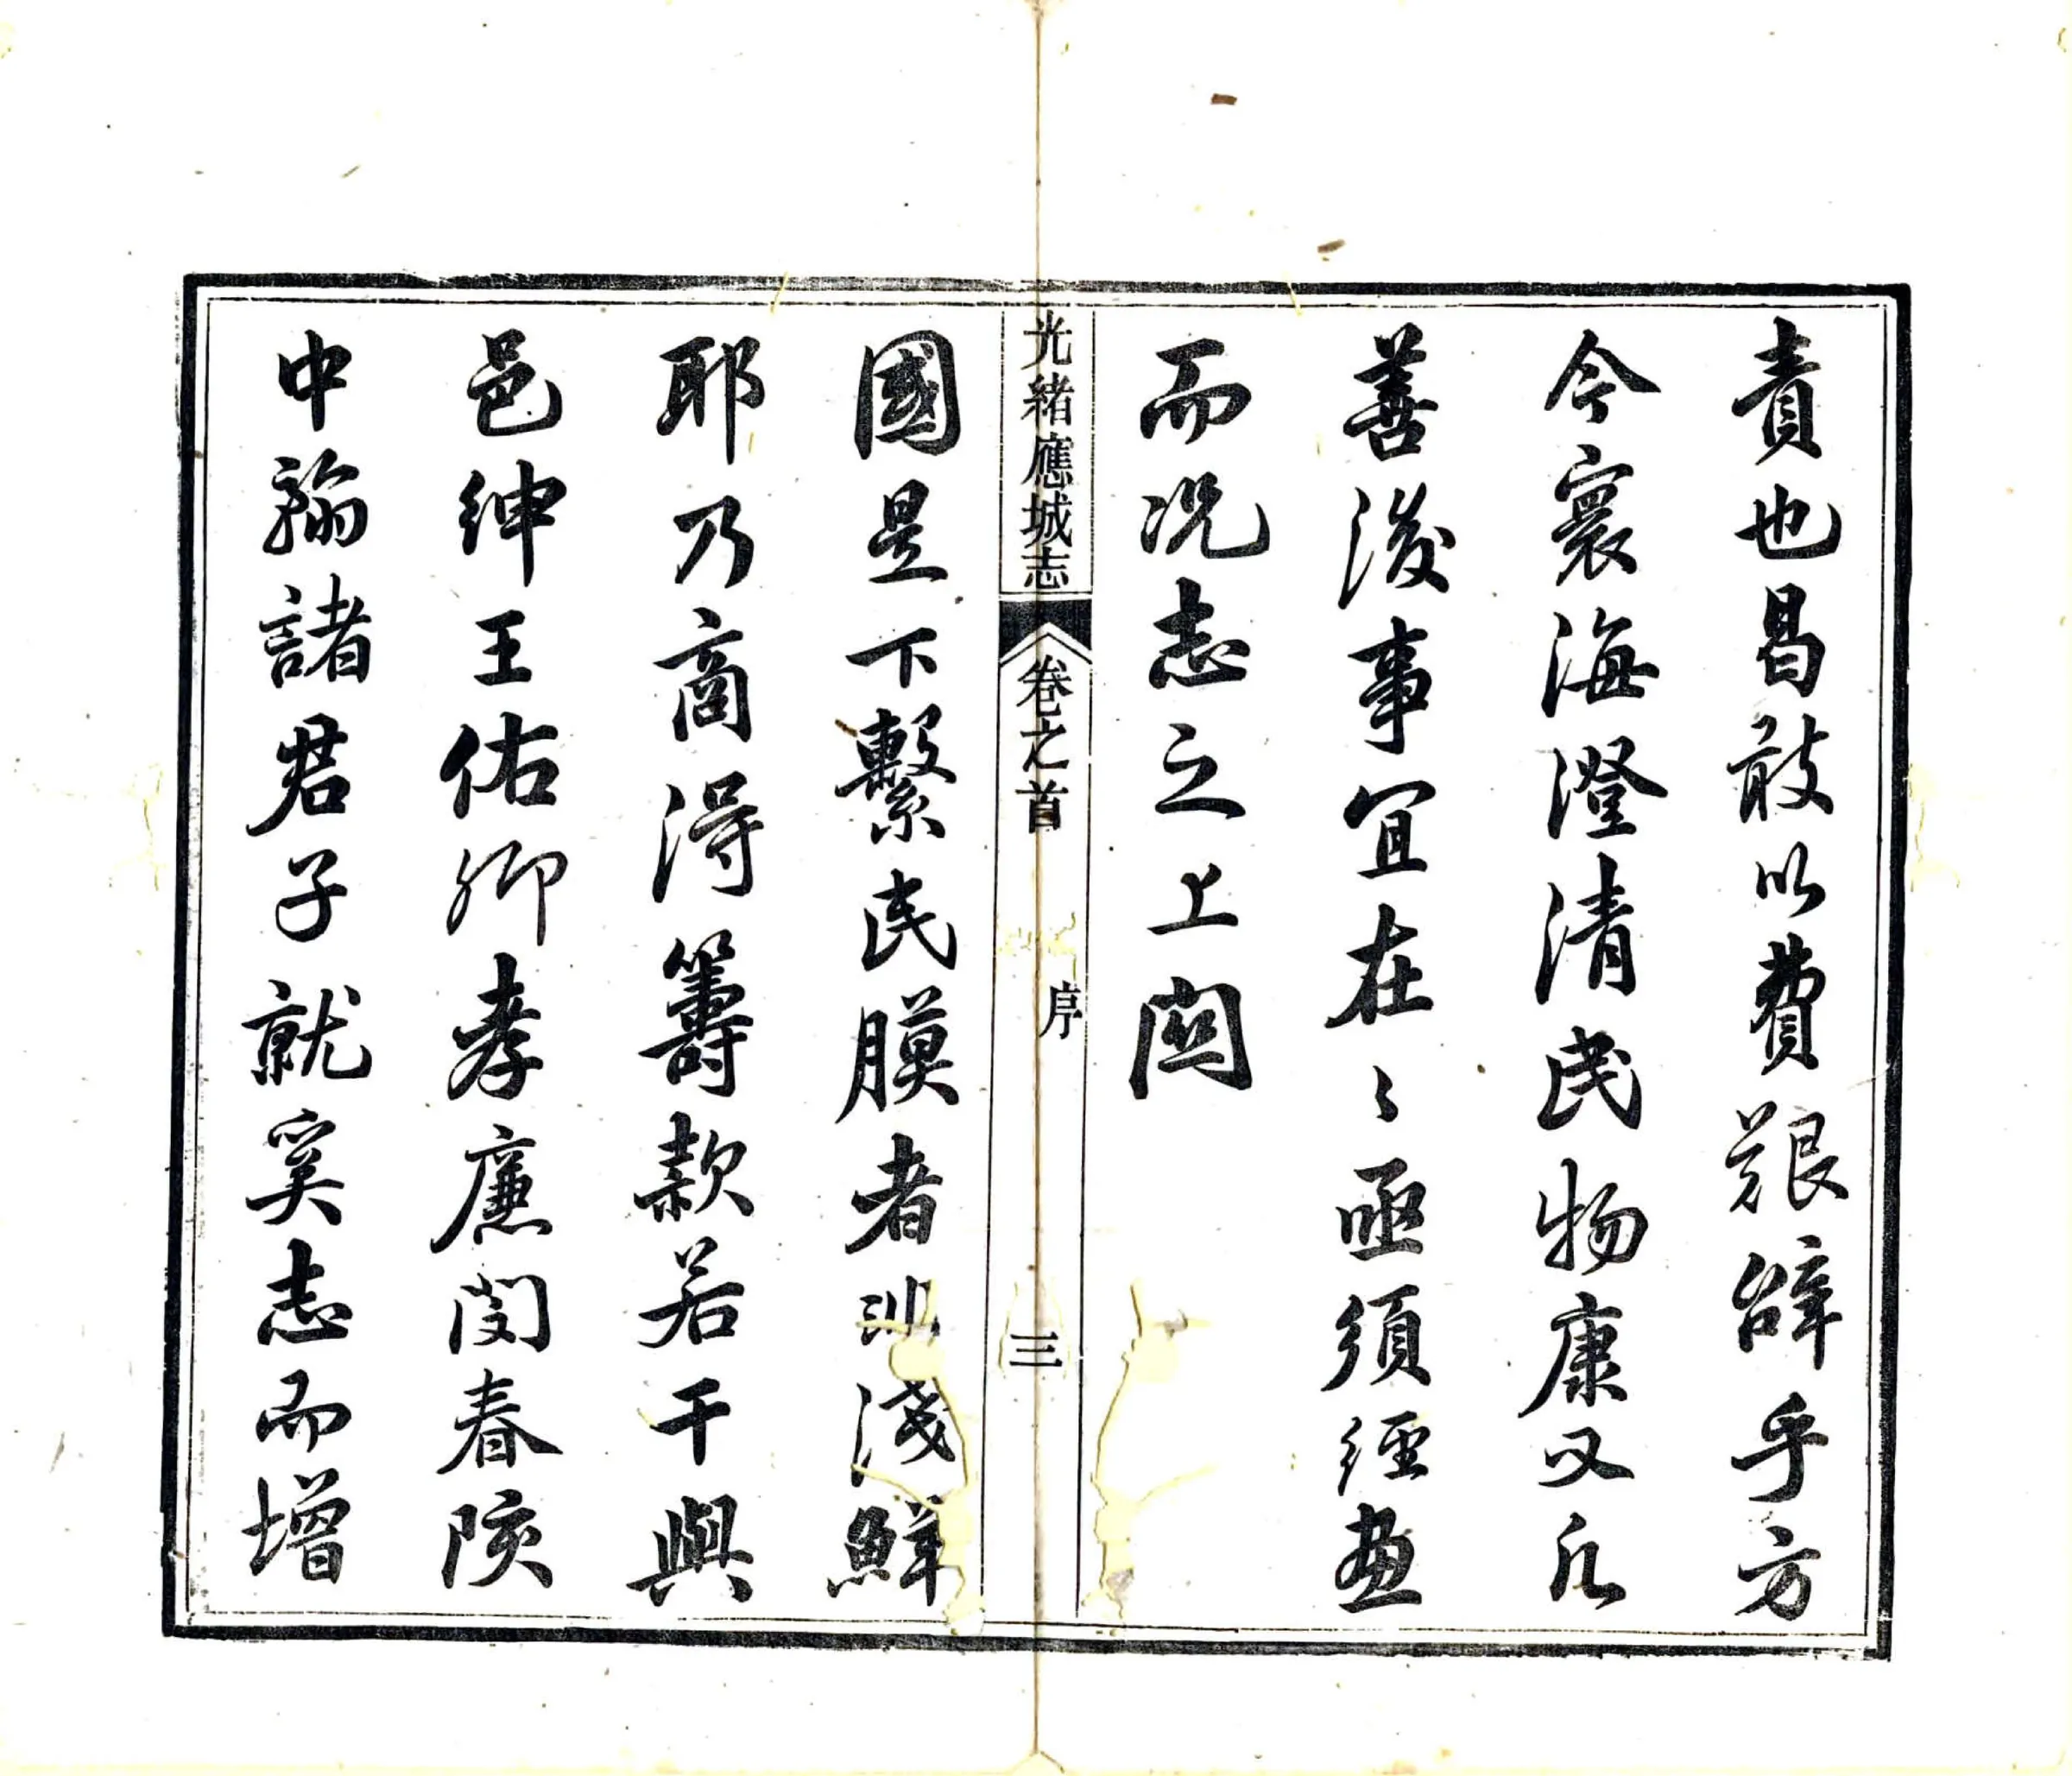 責也曷敢以費艱辭乎方
今寰海澄清民物康乂凡
善後事宜在〻亟須經畫
而况志之上關
光緒應城志 卷之首 序 三
國是下繫民膜者非淺鮮
耶乃商得籌款若干與
邑紳王佑卿孝廉閔春陔
中翰諸君子就奚志而增